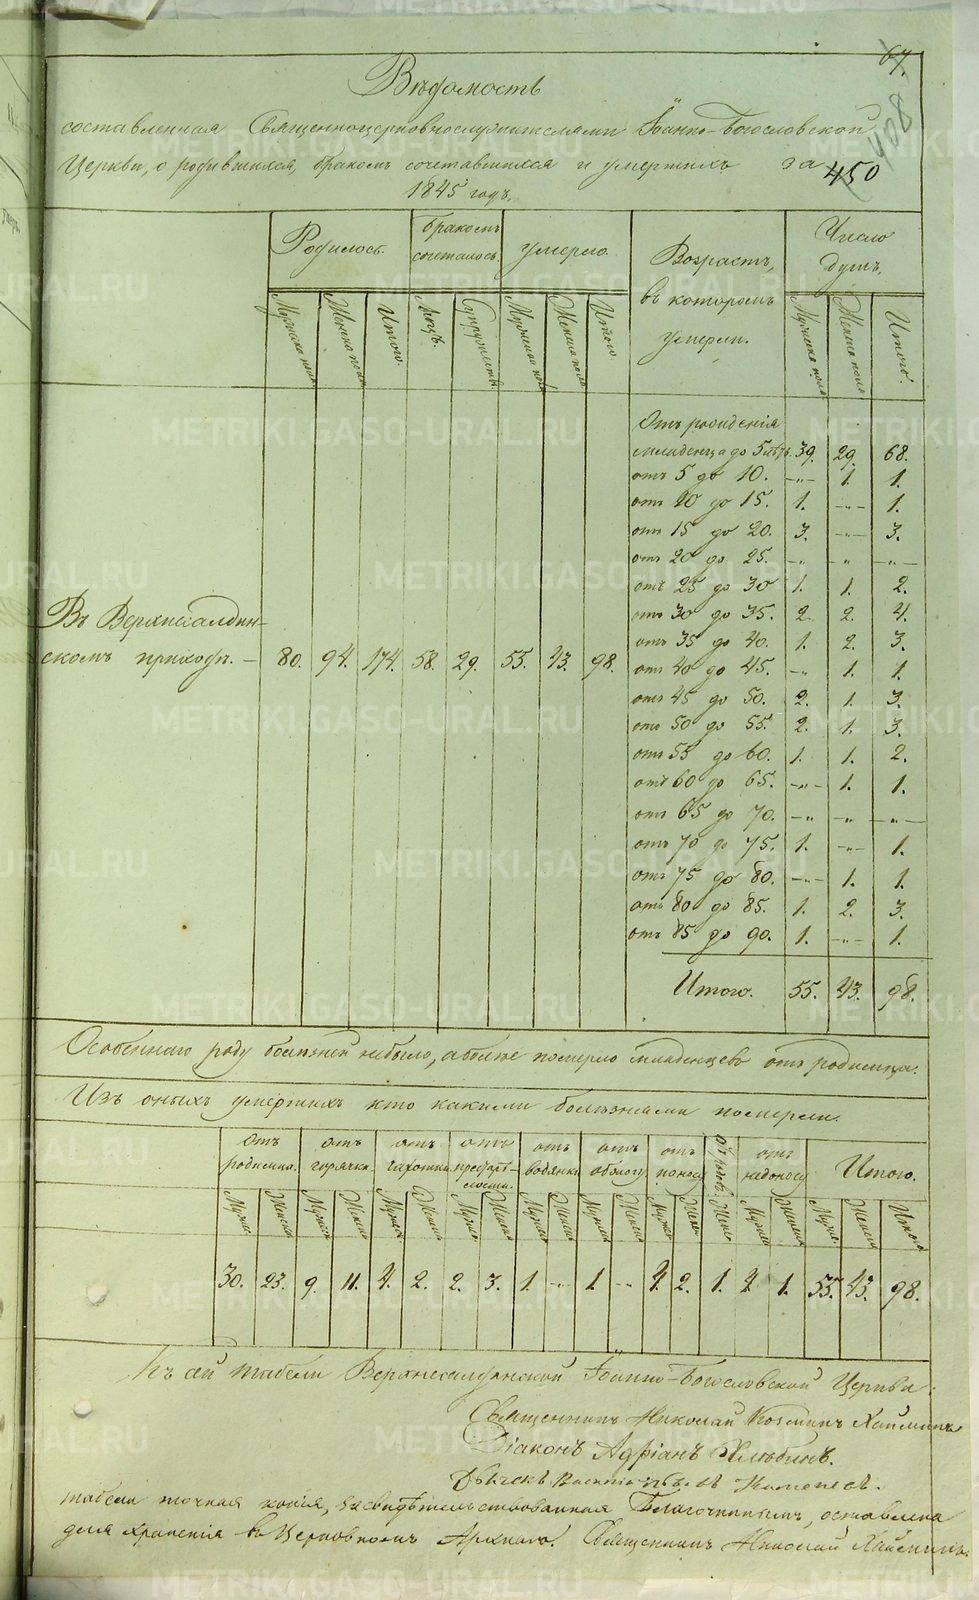 67.
468
450
Вѣдомость
составленная Священноцерковнослужителями Іоанно-Богословской
Церкви, о родившихся, бракомъ сочетавшихся и умершихъ за
1845 годъ.
Родилось. Бракомъ сочеталось. Умерло. Возрастъ, въ которомъ умерли. Число душъ.
Мужеска пола Женска пола Итого. Лицъ. Супружествъ Мужеска пола Женска пола Итого. Мужеска пола Женска пола Итого.
Отъ рожденія
младенца до 5 лѣтъ. 39. 29. 68.
отъ 5 до 10. -„- 1. 1.
отъ 10 до 15. 1. -„- 1.
отъ 15 до 20. 3. -„- 3.
отъ 20 до 25. -„ „ -„-
отъ 25 до 30 1. 1. 2.
отъ 30 до 35. 2. 2. 4.
отъ 35 до 40. 1. 2. 3.
отъ 40 до 45. -„ 1. 1.
отъ 45 до 50. 2. 1. 3.
отъ 50 до 55. 2. 1. 3.
отъ 55 до 60. 1. 1. 2.
отъ 60 до 65. -„- 1. 1.
отъ 65 до 70. -„ -„ -„-
отъ 70 до 75. 1. -„- 1.
отъ 75 до 80. -„- 1. 1.
отъ 80 до 85. 1. 2. 3.
отъ 85 до 90. 1. -„- 1.
Итого. 55. 43. 98.
Въ Верхнесалдин-
скомъ приходѣ. – 80. 94. 174. 58. 29. 55. 43. 98.
Особеннаго роду болѣзней небыло, а болѣе померло младенцевъ отъ родимца.
Изъ оныхъ умершихъ кто какими болѣзнями померли.
отъ родимца. отъ горячки. отъ чахотки отъ престарѣлости. отъ водянки отъ отъ поноса отъ родовъ. отъ Итого.
Мужес. Женск. Мужес. Женск. Мужес. Женск. Мужес. Женск. Мужес. Женск. Мужес. Женск. Мужес. Женск. Женск. Мужес. Женск. Мужес. Женск. Итого
30. 23. 9. 11. 4. 2. 2. 3. 1. -„- 1. -„- 4. 2. 1. 4. 1. 55. 43. 98.
Къ сей табели Верхнесалдинской Іоанно-Богословской Церкви:
Священникъ Николай Козминъ Хаймин
Діаконъ Адріанъ Хлѣбинъ.
Дьячекъ
табели точная копія, засвидѣтельствованная Благочиннымъ, оставлена
для храненія въ Церковномъ Архивѣ. Священникъ Николай Хайминъ.
METRIKI.GASO-URAL.RU